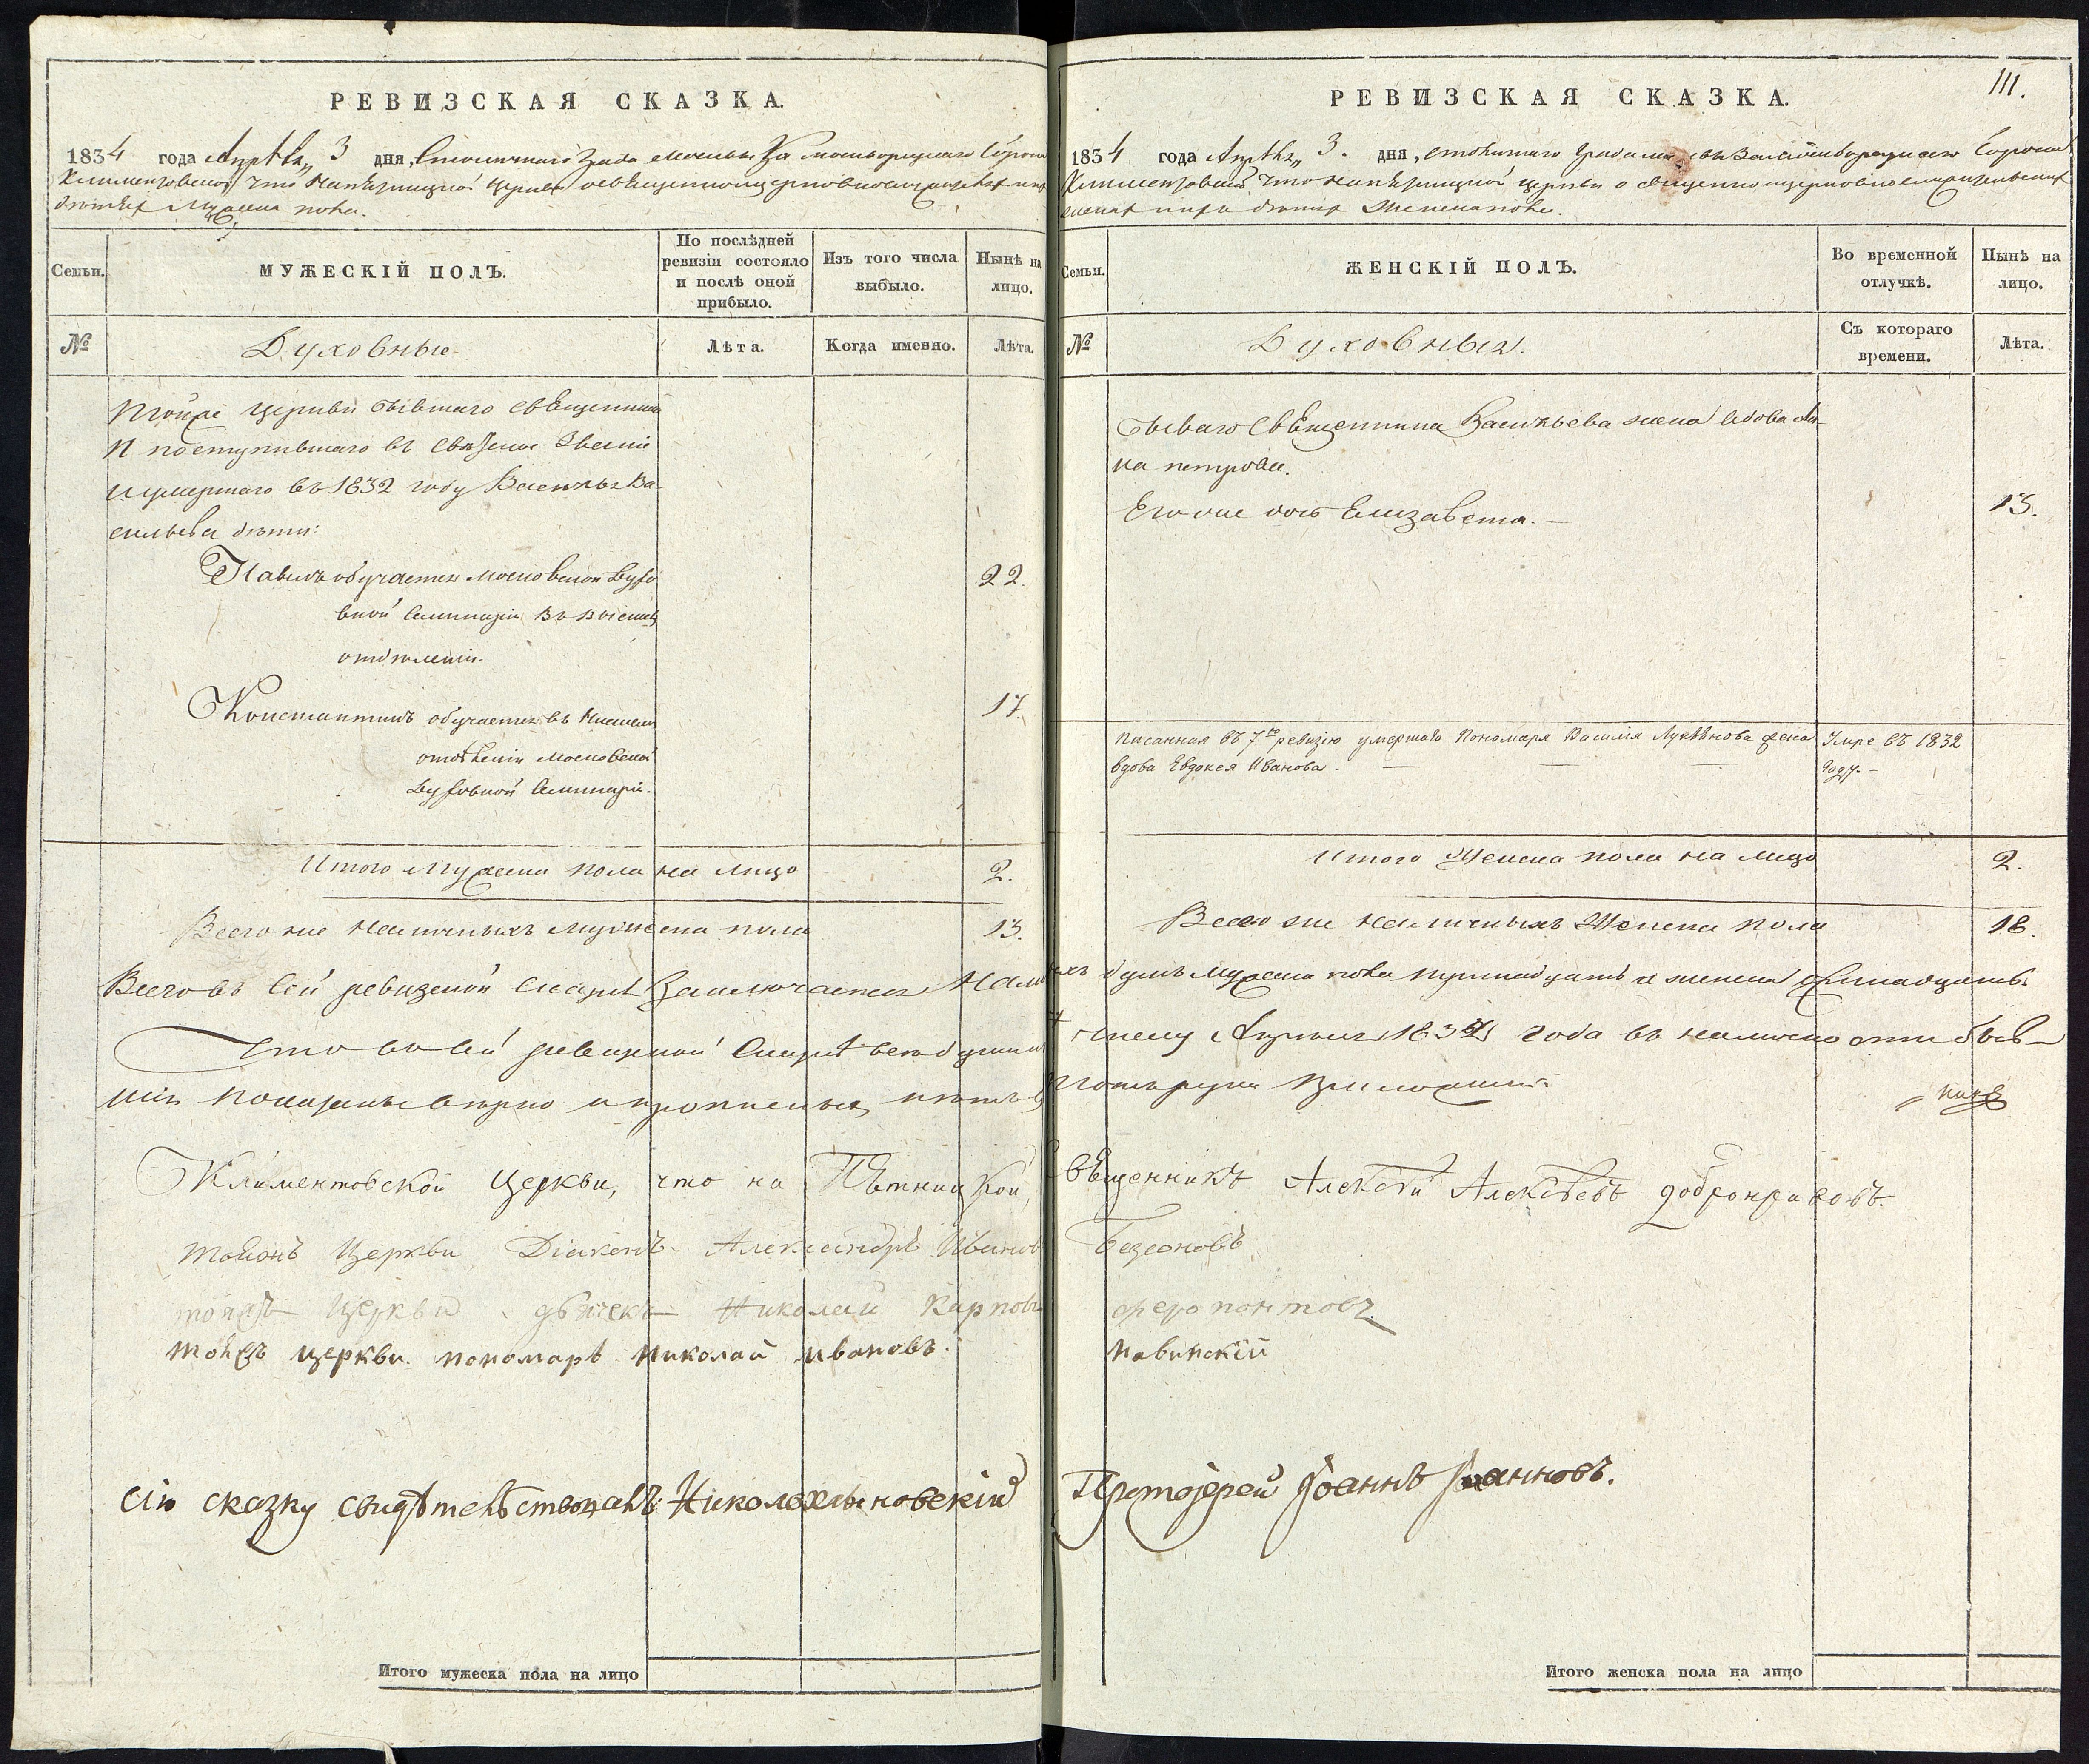 РЕВИЗСКАЯ СКАЗКА.
1834 года Апрѣля 3 дня, Столичнаго града Москвы Замоскворецкаго Сорока
Климентовской что на Пятницкой церкви о священноцерковнослужителяхъ и ихъ
дѣтяхъ Мужеска пола.
Семьи.
МУЖЕСКІЙ ПОЛЪ.
По послѣдней ревизіи состояло и послѣ оной прибыло.
Изъ того числа выбыло.
Нынѣ на лицо.
№
Духовные
Лѣта.
Когда именно.
Лѣта.
Тойже церкви бывшаго священника
и поступившаго въ званіе
и умершаго въ 1832 году Василья Ва-
сильева дѣти:
Павелъ обучается Московской Духо
вной Семинаріи въ высшемъ 22.
отдѣленіи.
Константинъ обучается въ низшемъ 17.
отдѣленіи Московской
Духовной Семинаріи.
Итого Мужеска пола на лицо 2.
Всего же наличныхъ Мужеска пола 13.
РЕВИЗСКАЯ СКАЗКА. 111.
1834 года Апрѣля 3. дня, столичнаго града Москвы Замоскворецкаго Сорока
Климентовской что на Пятницкой церкви о священноцерковнослужительскихъ
женахъ и ихъ дѣтяхъ Женска пола.
Семьи.
ЖЕНСКІЙ ПОЛЪ.
Во временной отлучкѣ.
Нынѣ на лицо.
№
Духовныя.
Съ котораго времени.
Лѣта.
Бывшаго Священника Васильева жена вдова Ан-
на Петрова.
Его же дочь Елизавета. — 13.
Писанная въ 7ю ревизію умершаго Пономаря Василія Лукьянова жена Умре въ 1832
вдова Евдокея Иванова. — году. —
Итого Женска пола на лицо 2.
Всего же наличныхъ Женска пола 18.
Всего въ сей ревизской сказкѣ заключается наличныхъ душъ Мужеска пола тринадцать и женска осмнадцать.
Что въ сей ревизской сказкѣ всѣ души къ числу Апрѣля 1834 года въ наличности быв-
шія показаны вѣрно и прописныхъ нѣтъ въ томъ руки приложили:
Климентовской Церкви, что на Пѣтницкой, Свѣщенникъ Алексѣй Алексѣевъ Добронравовъ.
тоежъ Церкви Діаконъ Александръ Ивановъ Безсоновъ
тоежъ Церкви дьячекъ Николай Карповъ Ферапонтовъ
тоежъ церкви пономарь Николай Ивановъ Павинскій
Сію сказку свидѣтельствовалъ: Николохлыновскій Протоіерей Іоаннъ Іоанновъ.
Итого мужеска пола на лицо
Итого женска пола на лицо